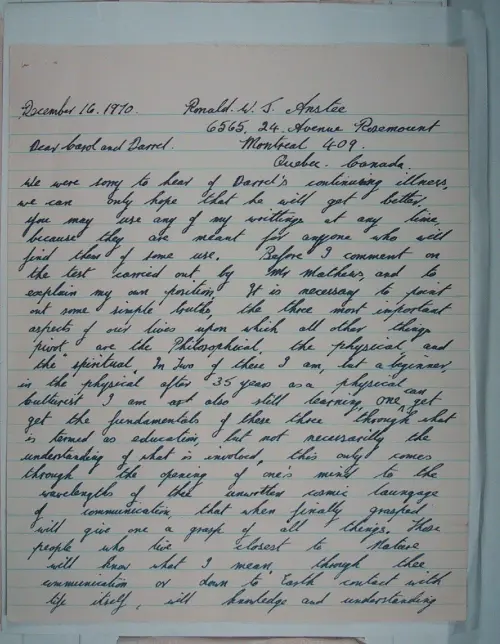 December 16. 1970. Ronald. W. J. Anstee
6565, 24. Avenue Rosemount
Dear Carol and Darrel. Montreal 409.
Quebec. Canada.
We were sorry to hear of Darrel's continuing illness,
we can only hope that he will get better,
you may use any of my writtings at any time,
because they are meant for anyone who will
find them of some use. Before I comment on
the test carried out by Mr Mathews, and to
explain my own position, It is necessary to point
out some simple truths, the three most important
aspects of our lives upon which all other things
"pivot" are the Philosophical, the physical and
the "spiritual". In two of these I am, but a beginner
in the physical after 35 years as a physical
culturist I am also still learning, one can get
get the fundamentals of these three through what
is termed as education, but not necessarily the
understanding of what is involved, this only comes
through the opening of one's mind to the
wavelengths of this unwritten cosmic laungage
of communication, that when finally grasped
will give one a grasp of all things. Those
people who live closest to Nature
will know what I mean, through thee
communication or down to Earth contact with
life itself, will knowledge and understanding